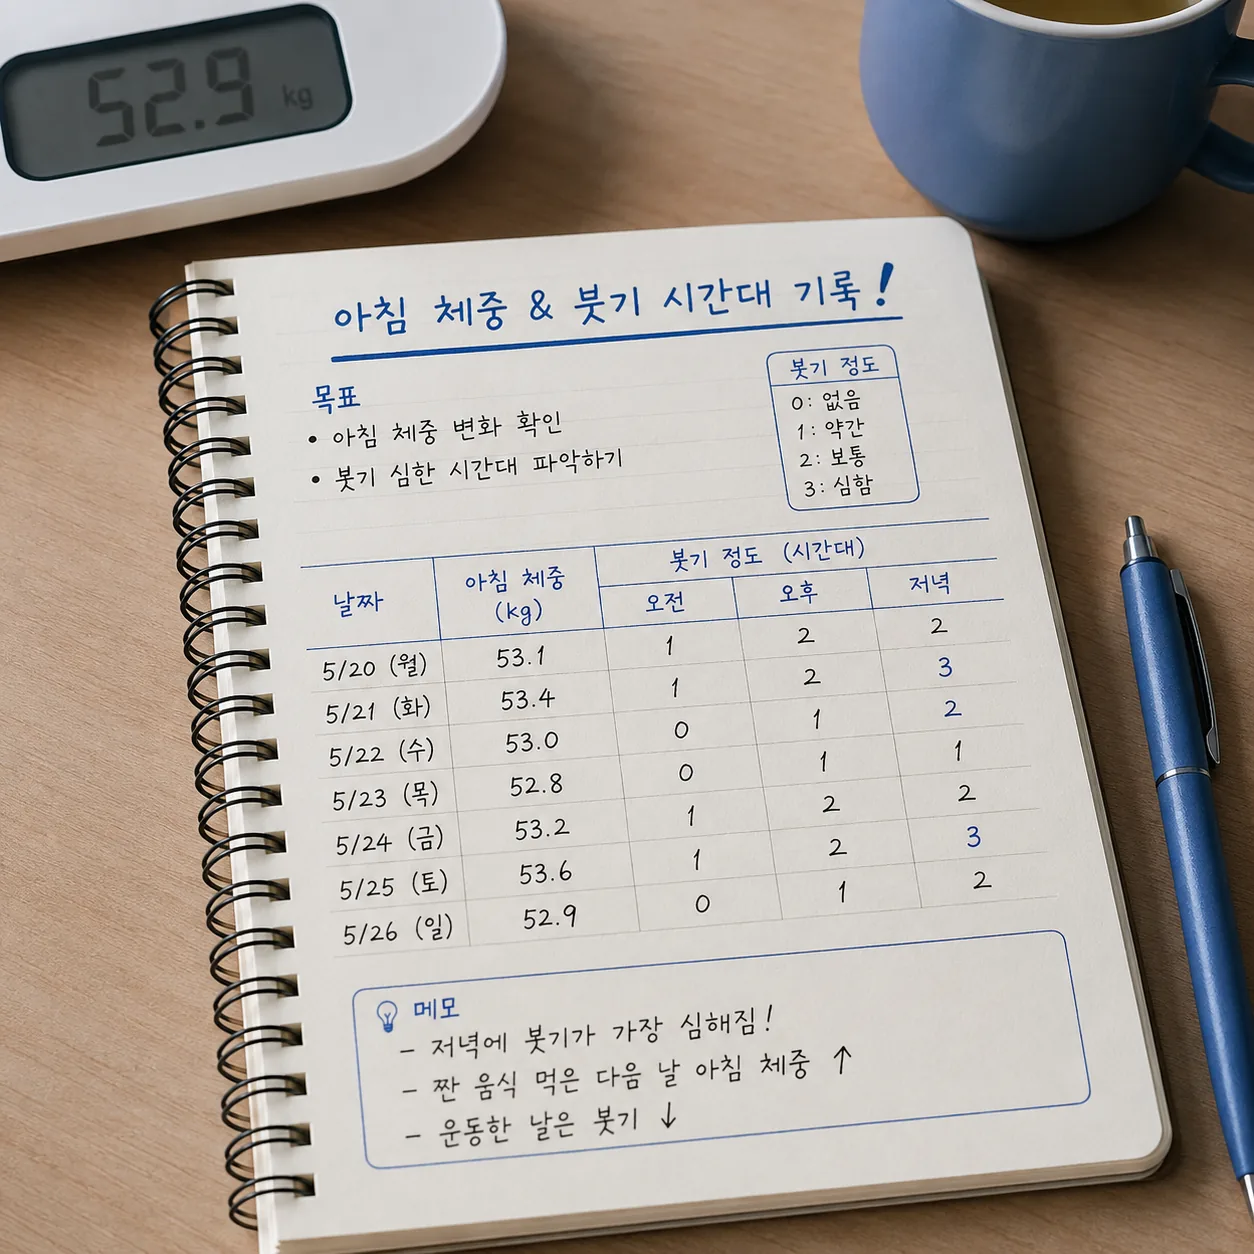 52.9 kg
아침 체중 & 붓기 시간대 기록!
목표
• 아침 체중 변화 확인
• 붓기 심한 시간대 파악하기
붓기 정도
0: 없음
1: 약간
2: 보통
3: 심함
날짜 아침 체중 (kg) 붓기 정도 (시간대)
오전 오후 저녁
5/20 (월) 53.1 1 2 2
5/21 (화) 53.4 1 2 3
5/22 (수) 53.0 0 1 2
5/23 (목) 52.8 0 1 1
5/24 (금) 53.2 1 2 2
5/25 (토) 53.6 1 2 3
5/26 (일) 52.9 0 1 2
메모
– 저녁에 붓기가 가장 심해짐!
– 짠 음식 먹은 다음 날 아침 체중 ↑
– 운동한 날은 붓기 ↓